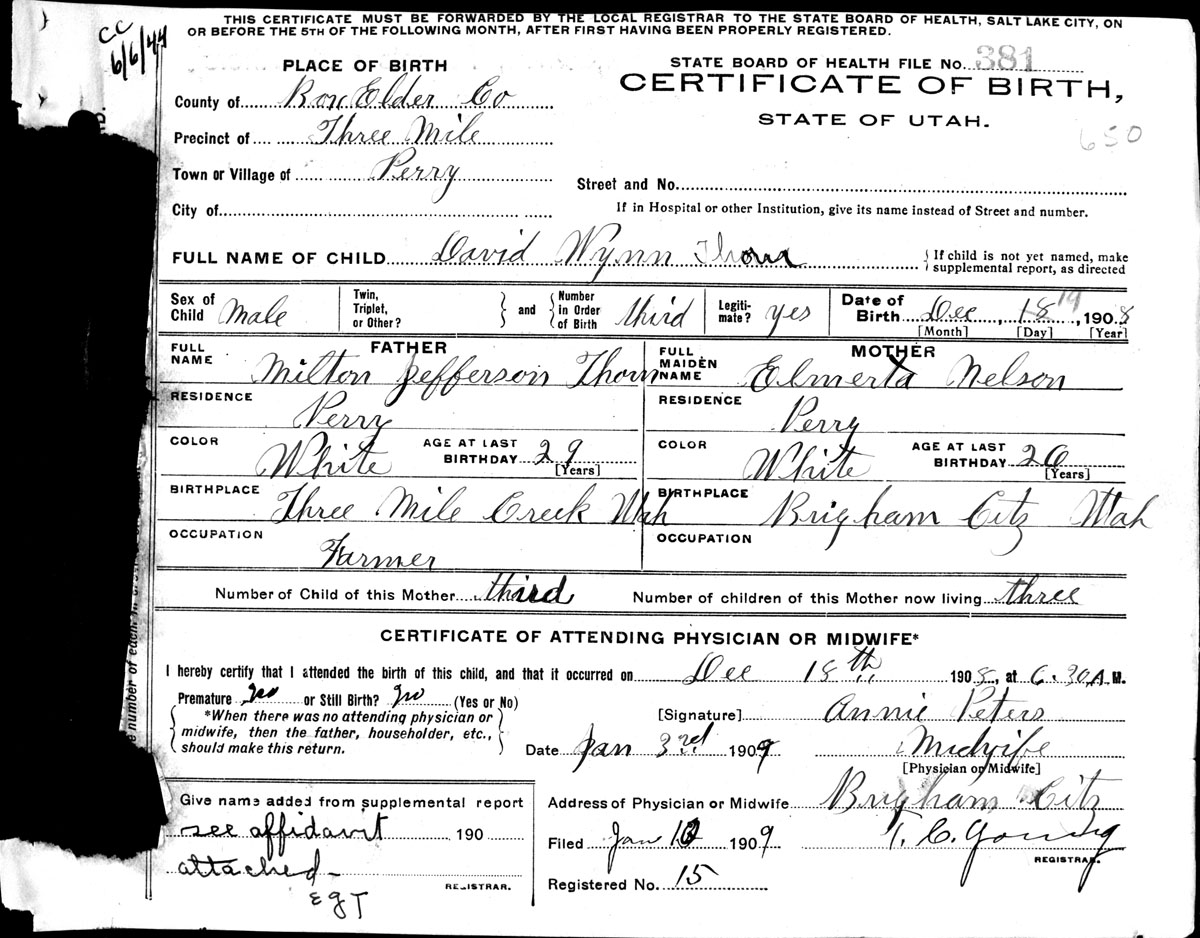 CC
6/6/44
THIS CERTIFICATE MUST BE FORWARDED BY THE LOCAL REGISTRAR TO THE STATE BOARD OF HEALTH, SALT LAKE CITY, ON
OR BEFORE THE 5TH OF THE FOLLOWING MONTH, AFTER FIRST HAVING BEEN PROPERLY REGISTERED.
PLACE OF BIRTH
STATE BOARD OF HEALTH FILE NO. 381
CERTIFICATE OF BIRTH,
STATE OF UTAH.
650
County of Box Elder Co
Precinct of Three Mile
Town or Village of Perry
Street and No.
City of
If in Hospital or other Institution, give its name instead of Street and number.
FULL NAME OF CHILD David Wynn Thorn
{ If child is not yet named, make
supplemental report, as directed
Sex of Child Male
Twin, Triplet, or Other? } and { Number in Order of Birth third
Legiti-mate? yes
Date of Birth Dec, 18 19, 1908
[Month] [Day] [Year]
FATHER
FULL NAME Milton Jefferson Thorn
RESIDENCE
Perry
COLOR White AGE AT LAST BIRTHDAY 29 [Years]
BIRTHPLACE
Three Mile Creek Utah
OCCUPATION
Farmer
MOTHER
FULL MAIDEN NAME Elmerta Nelson
RESIDENCE
Perry
COLOR White AGE AT LAST BIRTHDAY 26 [Years]
BIRTHPLACE
Brigham City Utah
OCCUPATION
Number of Child of this Mother third Number of children of this Mother now living three
CERTIFICATE OF ATTENDING PHYSICIAN OR MIDWIFE*
I hereby certify that I attended the birth of this child, and that it occurred on Dec 18th 1908, at 6.30 A.M.
Premature no or Still Birth? no (Yes or No)
{ *When there was no attending physician or
midwife, then the father, householder, etc.,
should make this return. }
[Signature] Annie Peters
Date Jan 3rd 1909 Midwife
[Physician or Midwife]
Give name added from supplemental report
see affidavit 190
attached-
REGISTRAR.
EGT
Address of Physician or Midwife Brigham City
Filed Jan 1909 T. C. Young
REGISTRAR.
Registered No. 15
number of each, in